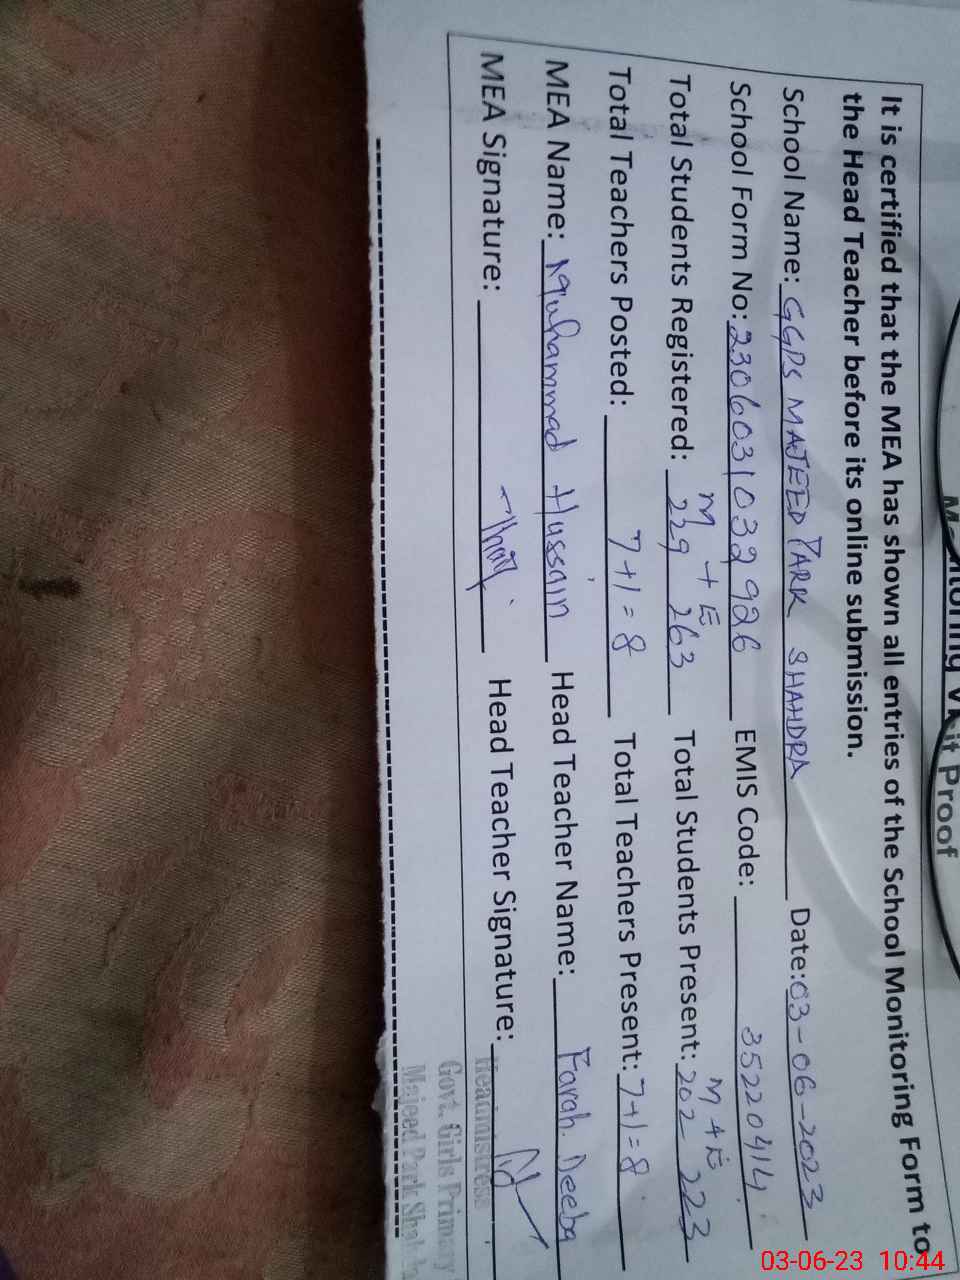 Monitoring Visit Proof
It is certified that the MEA has shown all entries of the School Monitoring Form to
the Head Teacher before its online submission.
School Name: GGPS MAJEED PARK SHAHDRA Date: 03-06-2023
School Form No: 2306031032926 EMIS Code: 35220414
M + E M + E
Total Students Registered: 229 263 Total Students Present: 202 223
Total Teachers Posted: 7+1=8 Total Teachers Present: 7+1=8
MEA Name: Muhammad Hussain Head Teacher Name: Farah Deeba
MEA Signature: Head Teacher Signature:
Headmistress
Govt. Girls Primary
Majeed Park
03-06-23 10:44